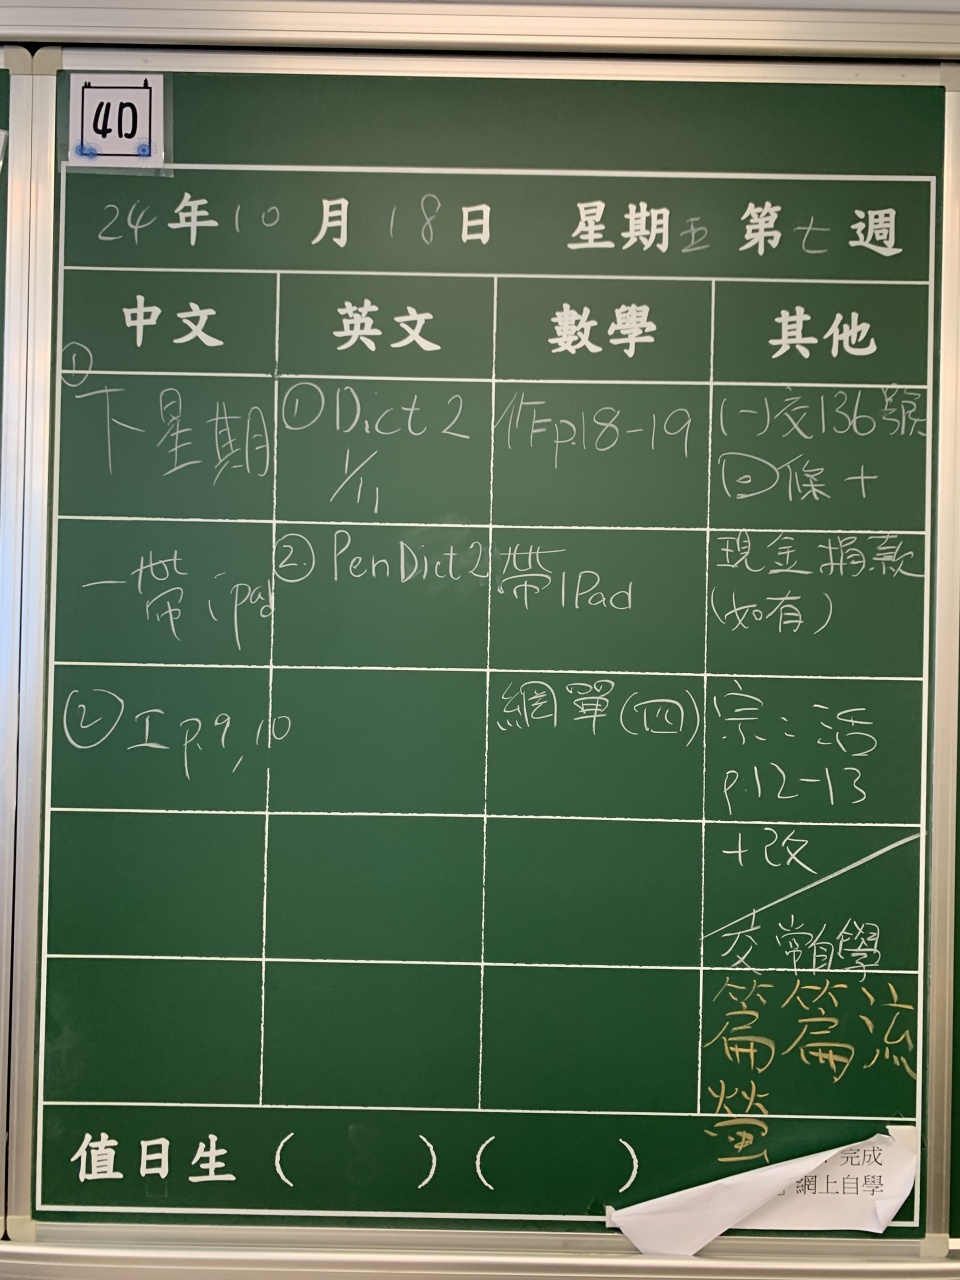 4D
24年10月18日 星期五 第七週
中文 英文 數學 其他
① 下星期
一帶ipad
② 工p.9,10
① Dict 2
1/11
② Pen Dict 2
作p.18-19
帶IPad
網單(四)
(一)交136號
回條+
現金捐款
(如有)
宗:活
p.12-13
+改
交常自學
篇篇流
螢
值日生( )( )
完成
網上自學